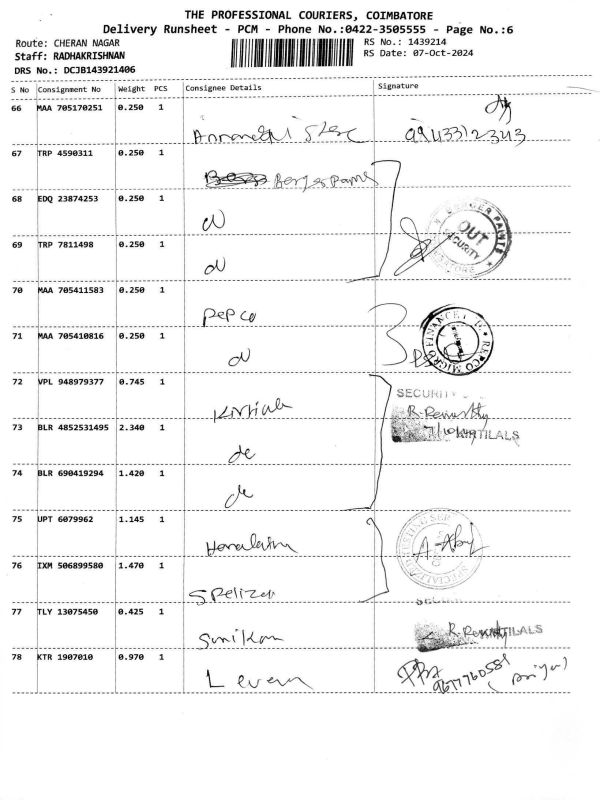 THE PROFESSIONAL COURIERS, COIMBATORE
Delivery Runsheet - PCM - Phone No.:0422-3505555 - Page No.:6
Route: CHERAN NAGAR
RS No.: 1439214
Staff: RADHAKRISHNAN
RS Date: 07-Oct-2024
DRS No.: DCJB143921406
S No Consignment No Weight PCS Consignee Details Signature
66 MAA 705170251 0.250 1
9943312343
67 TRP 4590311 0.250 1 Berger Paints
68 EDQ 23874253 0.250 1
BERGER PAINTS
OUT
SECURITY
69 TRP 7811498 0.250 1
70 MAA 705411583 0.250 1 Repco
71 MAA 705410816 0.250 1
REPCO MICRO FINANCE
72 VPL 948979377 0.745 1 Kirtilals
SECURITY
R. Remusthy
7/10/24
KIRTILALS
73 BLR 4852531495 2.340 1 do
74 BLR 690419294 1.420 1 do
75 UPT 6079962 1.145 1
76 IXM 506899580 1.470 1
77 TLY 13075450 0.425 1
KIRTILALS
78 KTR 1907010 0.970 1
9677760581